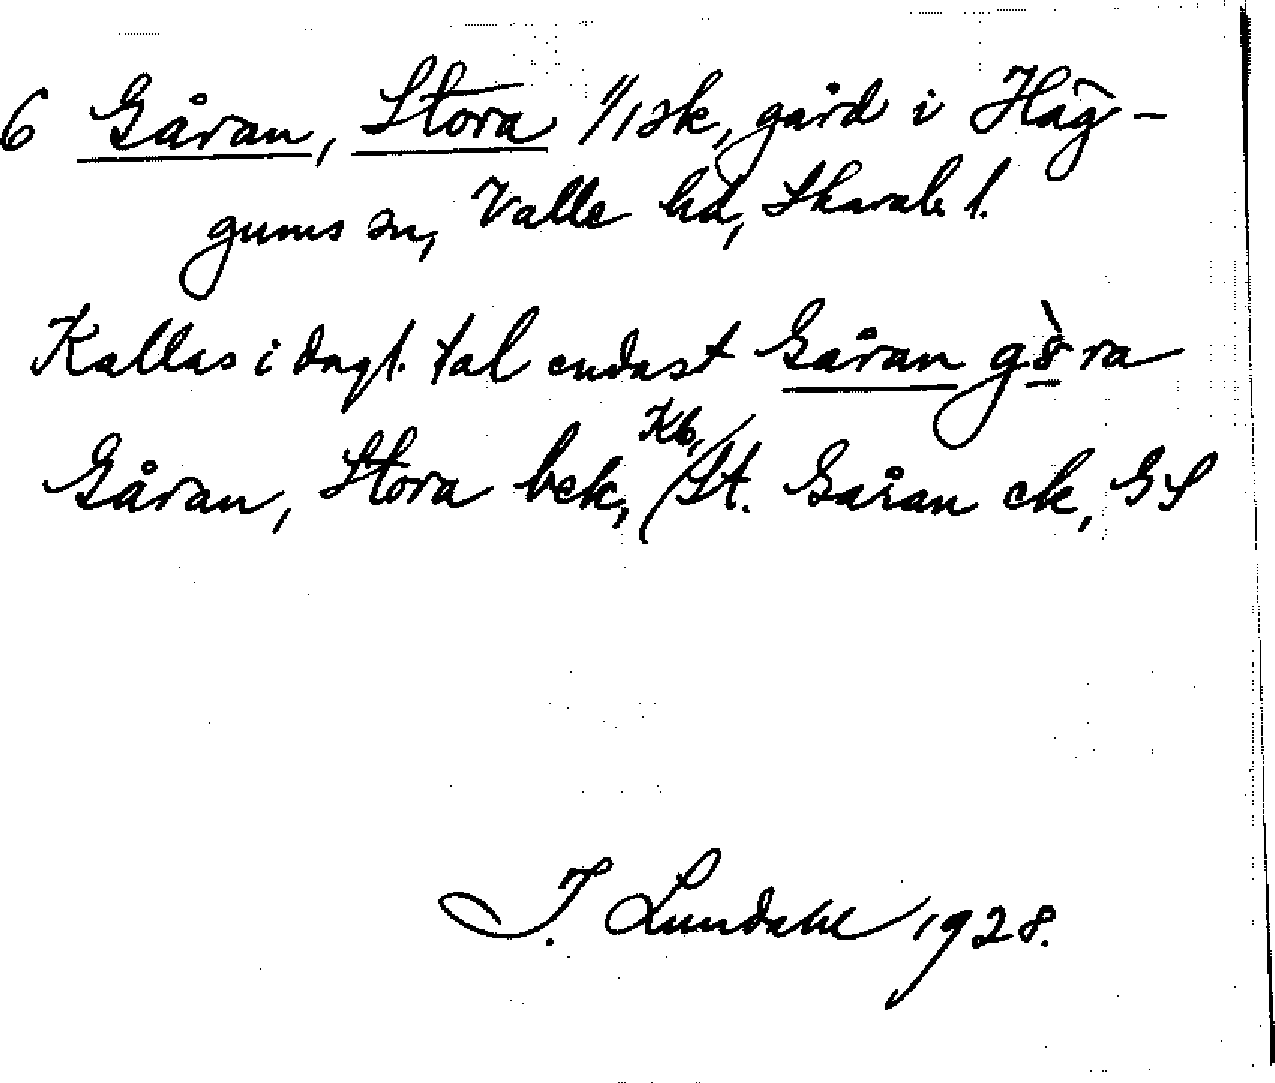 6 Gåran, Stora 1/1 sk, gård i Häg-
gums sn, Valle hd, Skarab. l.
Kallas i dagl. tal endast Gåran
Kb,
Gåran, Stora bek, /St. Gåran ek, GS
I. Lundahl 1928.